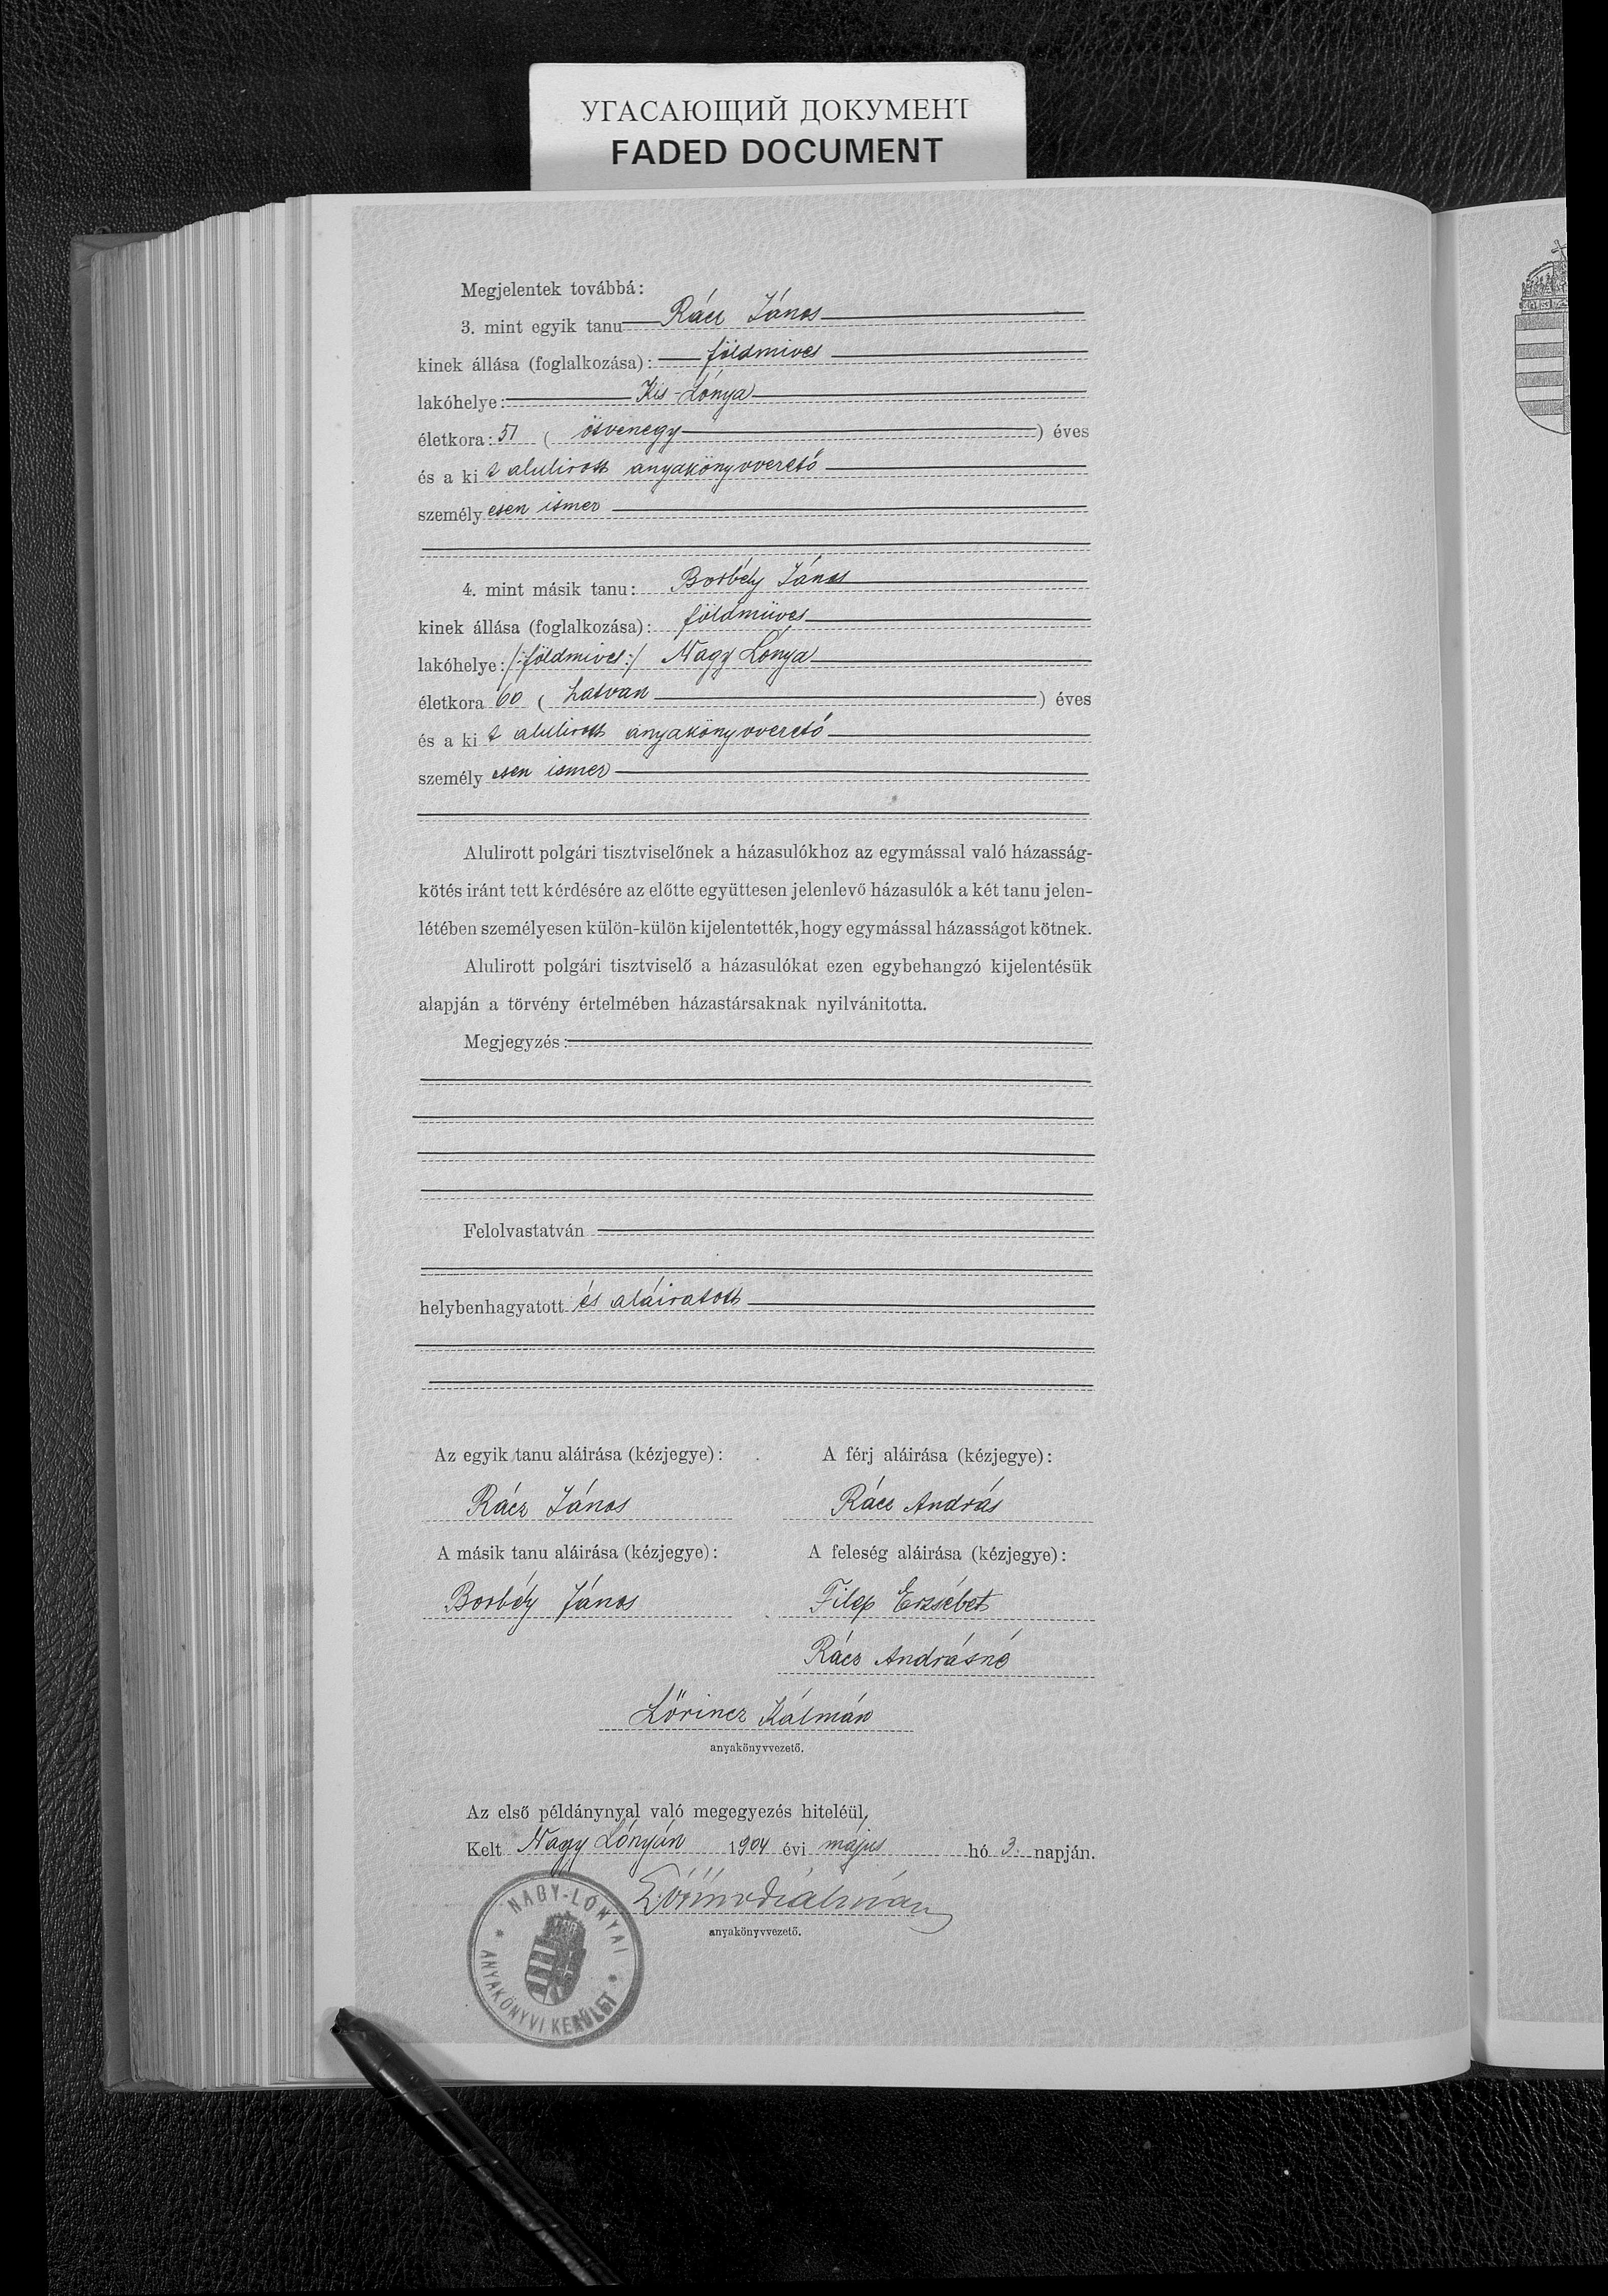 УГАСАЮЩИЙ ДОКУМЕНТ
FADED DOCUMENT
Megjelentek továbbá:
3. mint egyik tanu Rácz János
kinek állása (foglalkozása): földmives
lakóhelye: Kis-Lónya
életkora: 51 (ötvenegy) éves
és a ki t alulirott anyakönyvvezető
személyesen ismer
4. mint másik tanu: Borbély János
kinek állása (foglalkozása): földmüves
lakóhelye: /:földmives:/ Nagy Lónya
életkora 60 (hatvan) éves
és a ki t alulirott anyakönyvvezető
személyesen ismer
Alulirott polgári tisztviselőnek a házasulókhoz az egymással való házasság-
kötés iránt tett kérdésére az előtte együttesen jelenlevő házasulók a két tanu jelen-
létében személyesen külön-külön kijelentették, hogy egymással házasságot kötnek.
Alulirott polgári tisztviselő a házasulókat ezen egybehangzó kijelentésük
alapján a törvény értelmében házastársaknak nyilvánitotta.
Megjegyzés:
Felolvastatván
helybenhagyatott és aláiratott
Az egyik tanu aláirása (kézjegye): A férj aláirása (kézjegye):
Rácz János Rácz András
A másik tanu aláirása (kézjegye): A feleség aláirása (kézjegye):
Borbély János Filep Erzsébet
Rácz Andrásné
Lőrincz Kálmán
anyakönyvvezető.
Az első példánynyal való megegyezés hiteléül,
Kelt Nagy Lónyán 1904 évi május hó 3. napján.
Lőrincz Kálmán
anyakönyvvezető.
NAGY-LÓNYAI
* ANYAKÖNYVI KERÜLET *